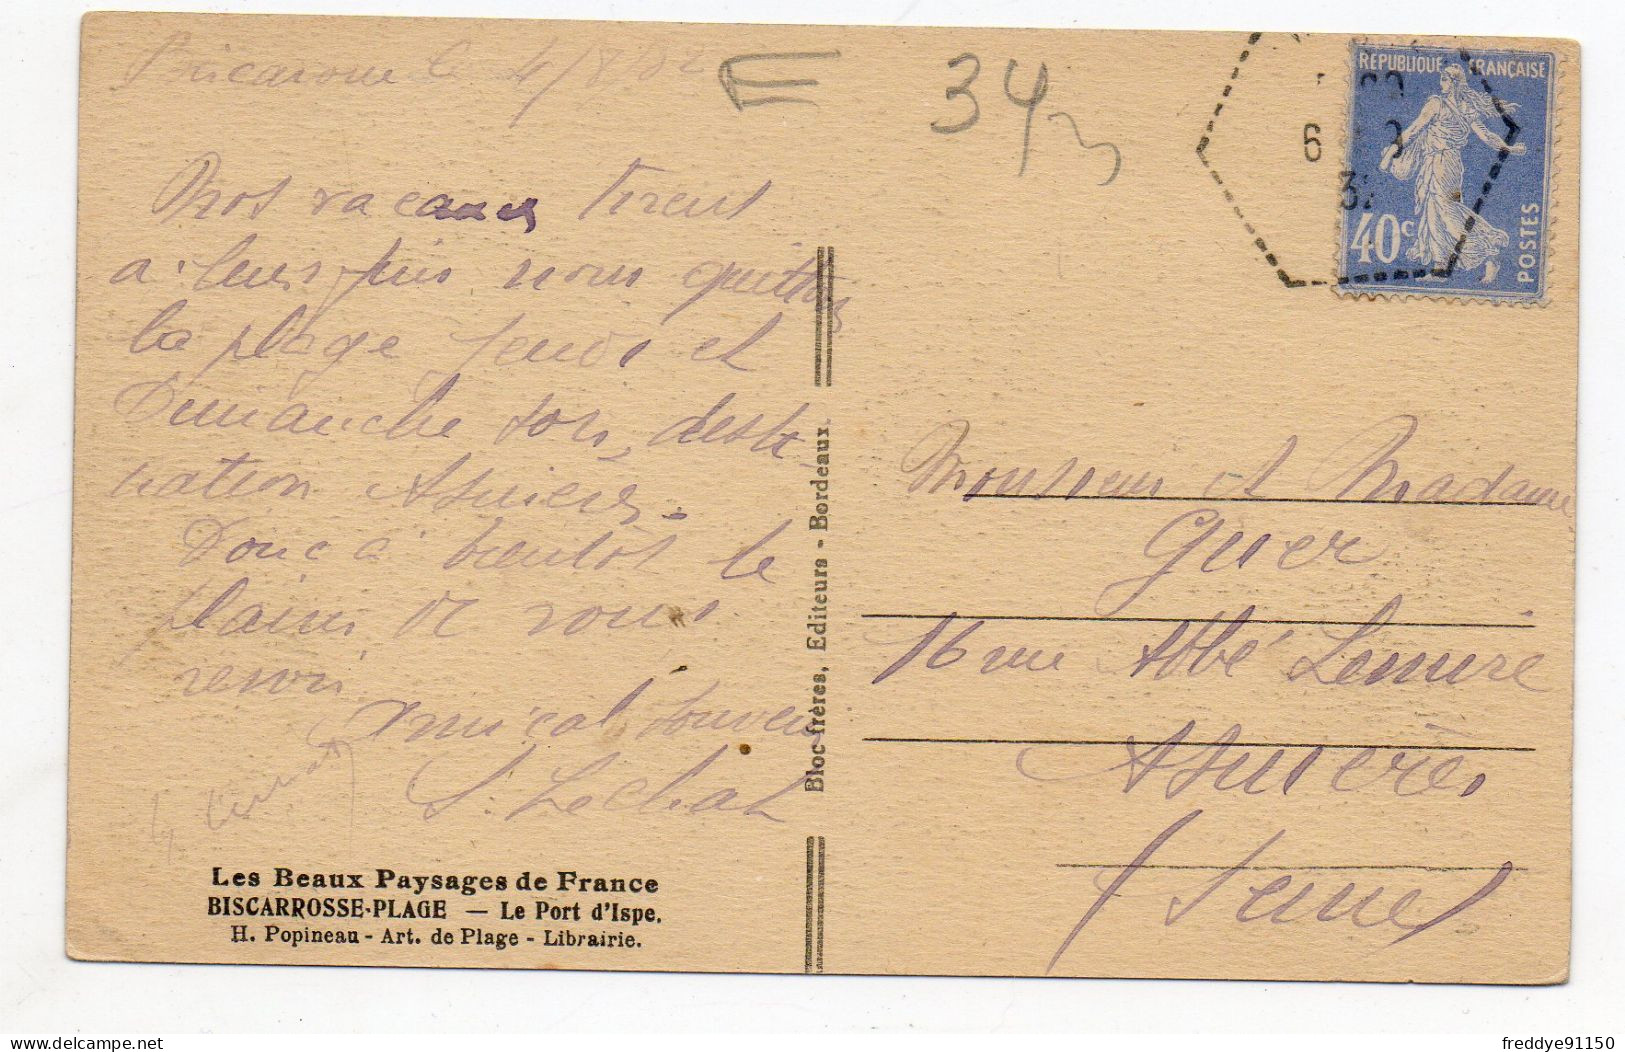 Biscarosse le 4/8/32
34
RÉPUBLIQUE FRANÇAISE
6 9
32
40c
POSTES
Nos vacances tirent
a leur fin nous quittons
la plage jeudi et
Dimanche soir, desti
nation Asnières.
Donc à bientôt le
plaisir de vous
revoir
Amical souvenir
S. Lechat
Monsieur et Madame
Guer
16 rue Abbé Lemire
Asnières
(Seine)
Bloc frères, Editeurs - Bordeaux.
Les Beaux Paysages de France
BISCARROSSE-PLAGE — Le Port d'Ispe.
H. Popineau - Art. de Plage - Librairie.
delcampe.net
freddye91150